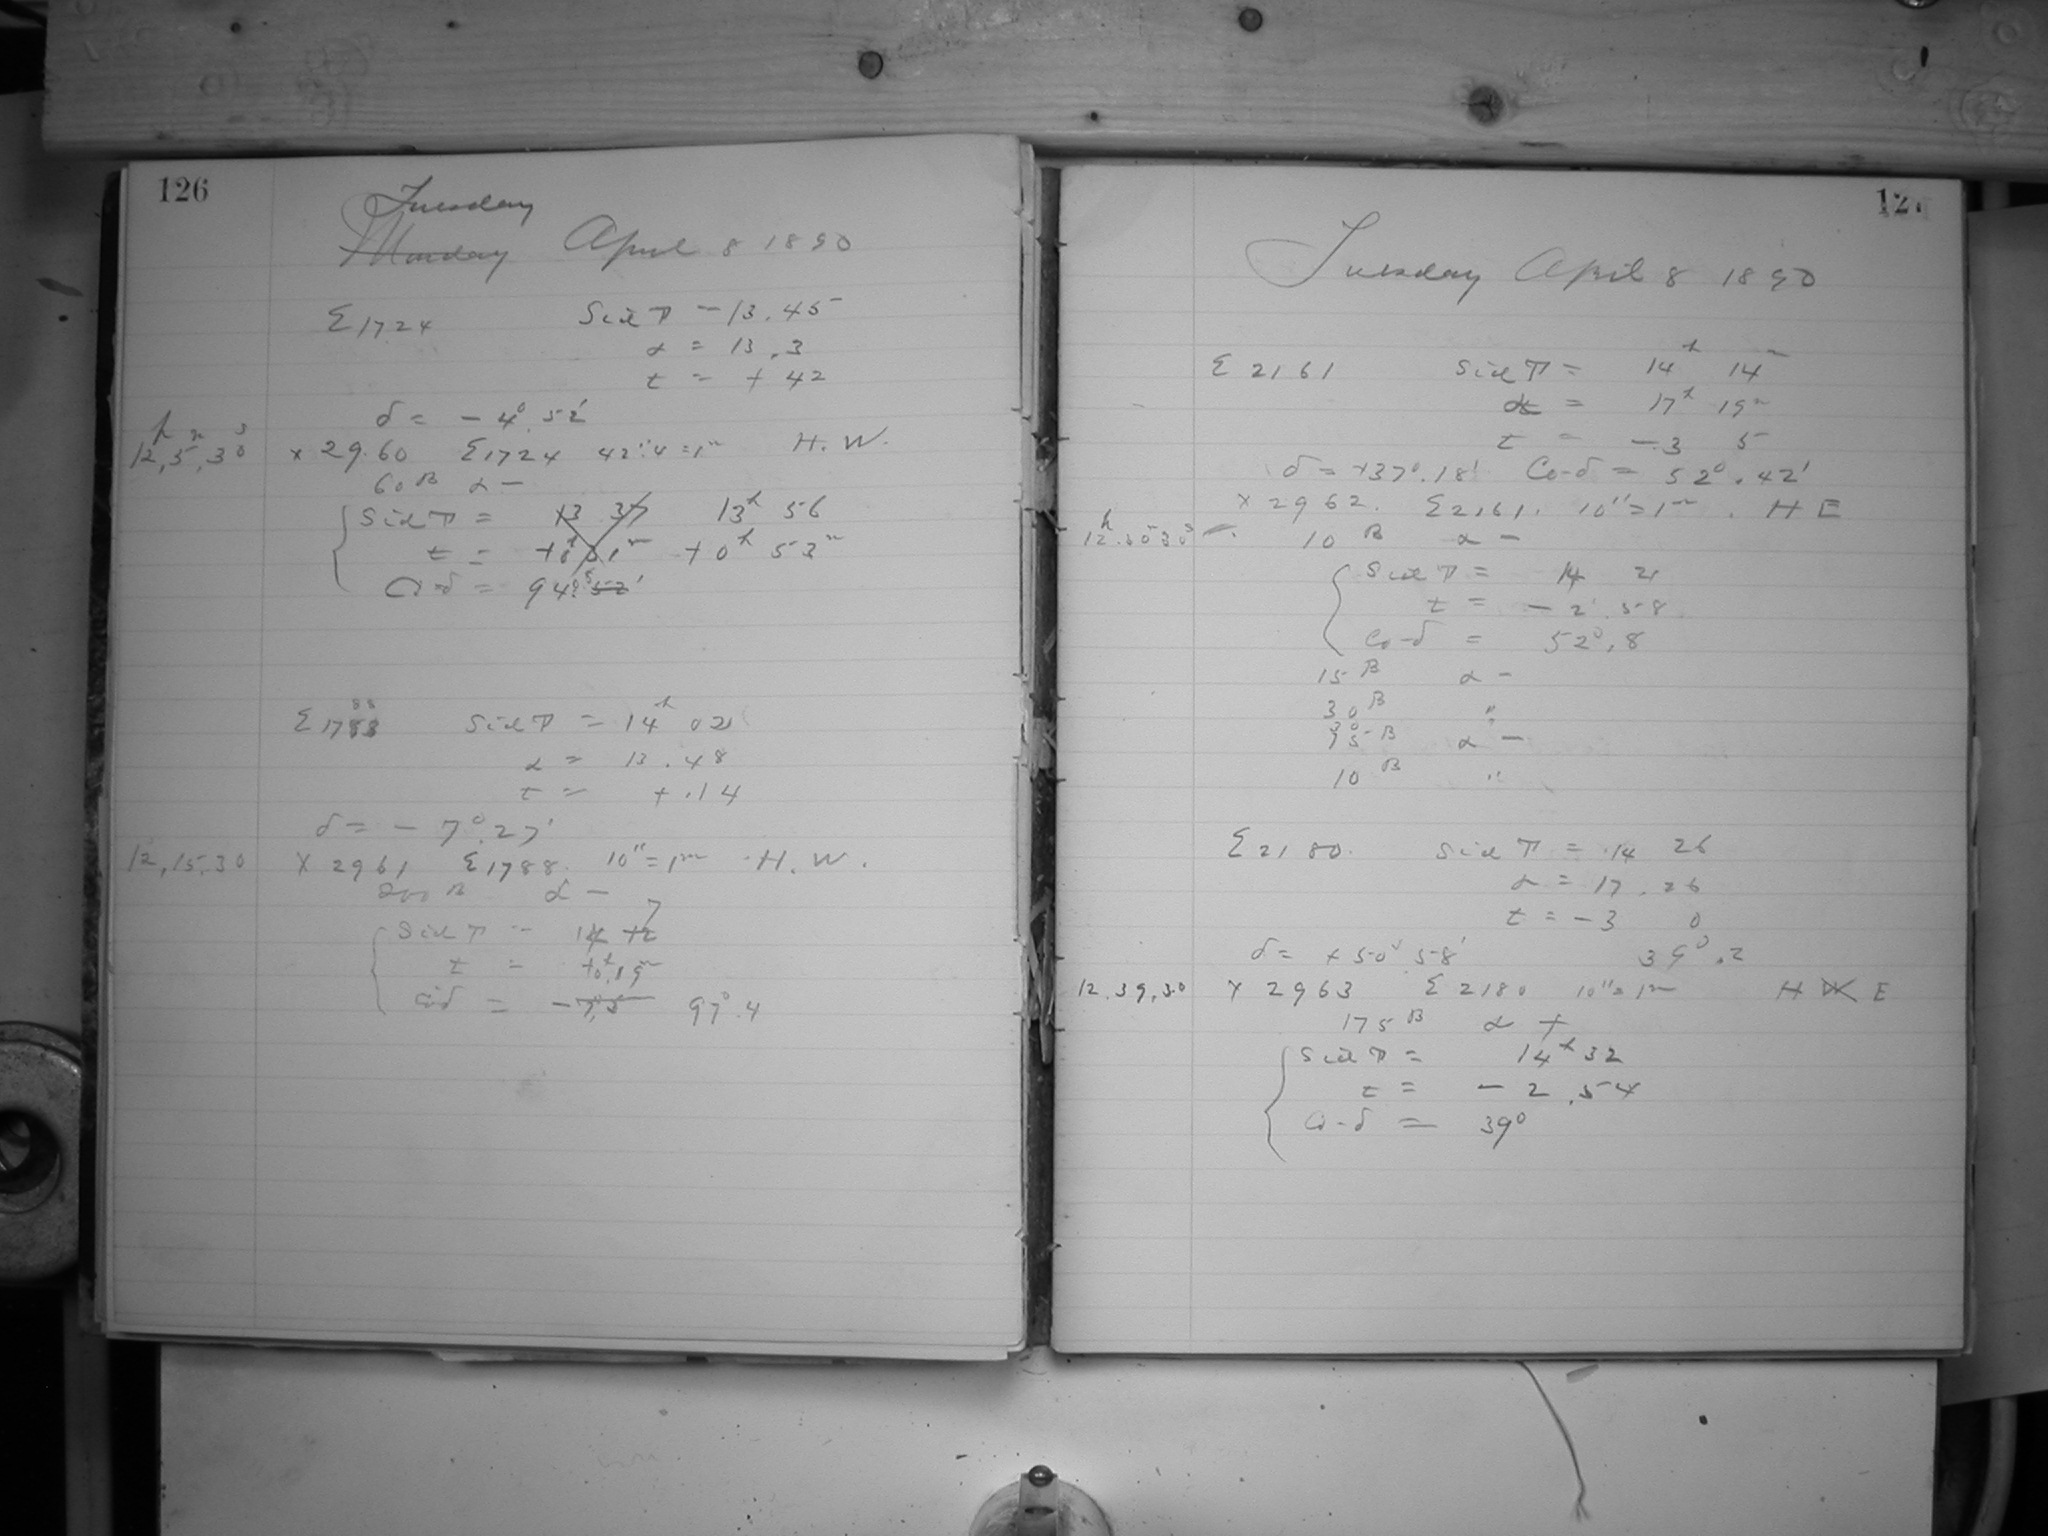 126
Tuesday
Monday April 8 1890
Σ 1724 Sid T = 13.45
α = 13.3
t = + 42
δ = - 4° 52'
h m s
12, 5, 30 × 2960 Σ1724 42".4 = 1m H. W.
60 B α -
Sid T = 13 37 13h 56
t = +0h 31m +0h 53m
Co-δ = 94°.5 52'
88
Σ 1788 Sid T = 14h 02
α = 13.48
t = + .14
δ = - 7° 27'
12, 15, 30 × 2961 Σ1788. 10" = 1m H. W.
200 B α -
7
Sid T = 14 12
t = +0h.19m
Co-δ = -7°.5 97°.4
127
Tuesday April 8 1890
Σ 2161 Sid T = 14h 14m
α = 17h 19m
t = - 3 5
δ = +37°.18' Co-δ = 52°.42'
× 2962. Σ2161. 10" = 1m. H E
10 B α -
Sid T = 14 21
t = - 2 58
Co-δ = 52°.8
15 B α -
30 B "
30
75 B α -
10 B "
Σ 2180. Sid T = 14 26
α = 17.26
t = - 3 0
δ = + 50° 58' 39°.2
12.39,30 × 2963 Σ 2180 10" = 1m H W E
175 B α +
Sid T = 14h 32
t = - 2.54
Co-δ = 39°